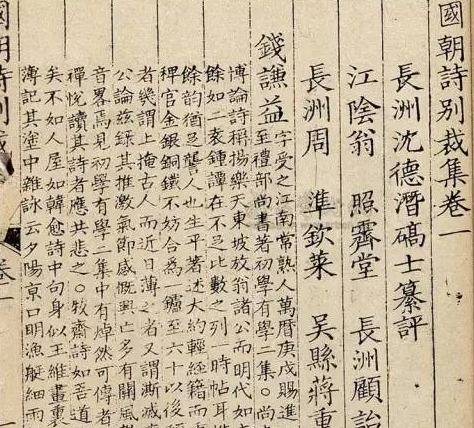 國朝詩別裁集卷一
長洲沈德潛碻士纂評
江陰翁　照霽堂　長洲顧詒
長洲周　準欽萊　吳縣蔣重
錢謙益字受之江南常熟人萬曆庚戌賜進
至禮部尚書著初學有學二集〇尚
博論詩稱揚樂天東坡放翁諸公而明代如
餘如二袁鍾譚在不足比數之列一時帖耳
餘韵猶足聾人也生平著述大約輕經籍而
稗官金銀銅鐵不妨合為一鑪至六十以後
者幾謂上掩古人而近日薄之者又謂澌滅
公論茲錄其推激氣節感慨興亡多有關風
音畧焉見初學有學二集中有焯然可傳者
禪悅讀其詩者應共悲之〇牧齋詩如吾道
矣不如人屋如韓愈詩中句身似王維畫裏
薄記其塗中雜詠云夕陽京口明漁艇細雨
國朝詩別裁
卷一